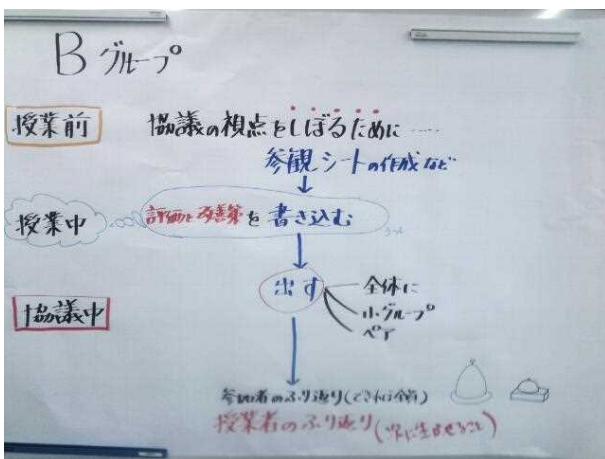 Bグループ
授業前 協議の視点をしぼるために……
参観シートの作成など
授業中 評価と改善策を書き込む
出す
全体に
小グループ
ペア
協議中
参加者のふり返り(できれば全員)
授業者のふり返り(次に生かせること)